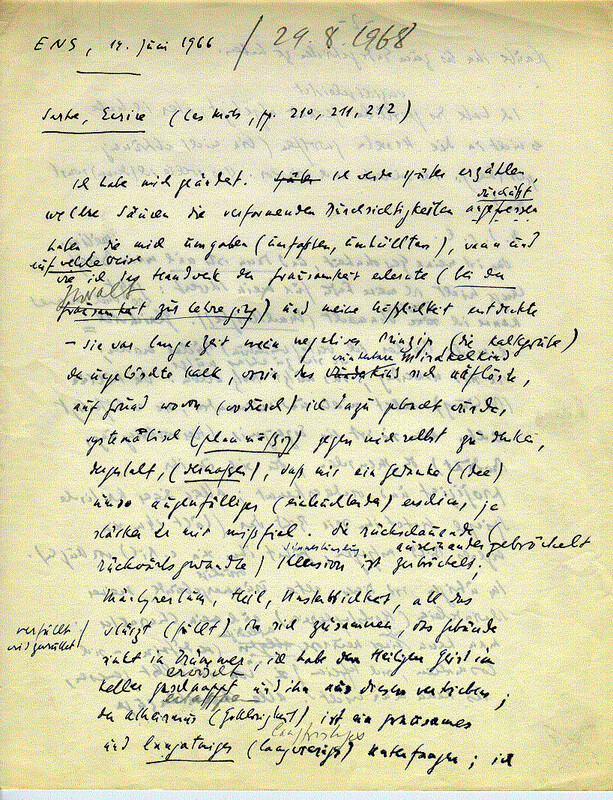 ENS, 14. Juni 1966 / 29.8.1968
Sartre, Écrire (Les Mots, pp. 210, 211, 212)
Ich habe mich geändert. Später ich werde später erzählen,
welche Säuren die verformenden Durchsichtigkeiten angefressen
durchätzt
haben die mich umgaben (umfaßten, umhüllten), wann und
auf welche Weise
wie ich das Handwerk der Grausamkeit erlernte (bei der
Gewalt
Grausamkeit zur Lehre ging) und meine Häßlichkeit entdeckte
– sie war lange Zeit mein negatives Prinzip, (die Kalkgrube)
Mirakelkind
der ungelöschte Kalk, worin das Wunderkind sich auflöste,
auf Grund wovon (wodurch) ich dazu gebracht wurde,
systematisch (planmäßig) gegen mich selbst zu denken,
dergestalt, (dermaßen), daß mir ein Gedanke (Idee)
umso augenfälliger (einleuchtender) erschien, je
stärker er mir mißfiel. Die rückschauende (
auseinandergebröckelt
rückwärtsgewandte) Illusion ist zerbröckelt;
Märtyrertum, Heil, Unsterblichkeit, all das
verfällt /
stürzt (fällt) in sich zusammen, das Gebäude
sinkt in Trümmer, ich habe den Heiligen Geist im
erwischt
Keller geschnappt und ihn aus diesem vertrieben;
der Atheismus (Gottlosigkeit) ist ein grausames
langfristiges
und langatmiges (langwieriges) Unterfangen; ich